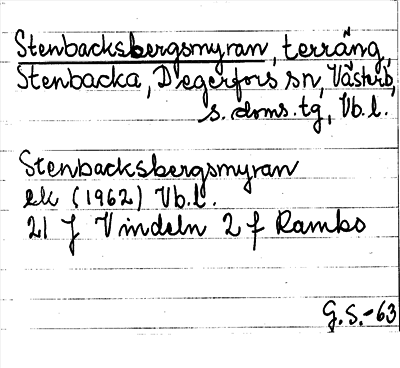 Stenbacksbergsmyran, terräng,
Stenbacka, Degerfors sn, Västerb.
s. doms. tg, Vb. l.
Stenbacksbergsmyran
ek (1962) Vb. l.
21 J Vindeln 2 f Rambo
G.S.-63